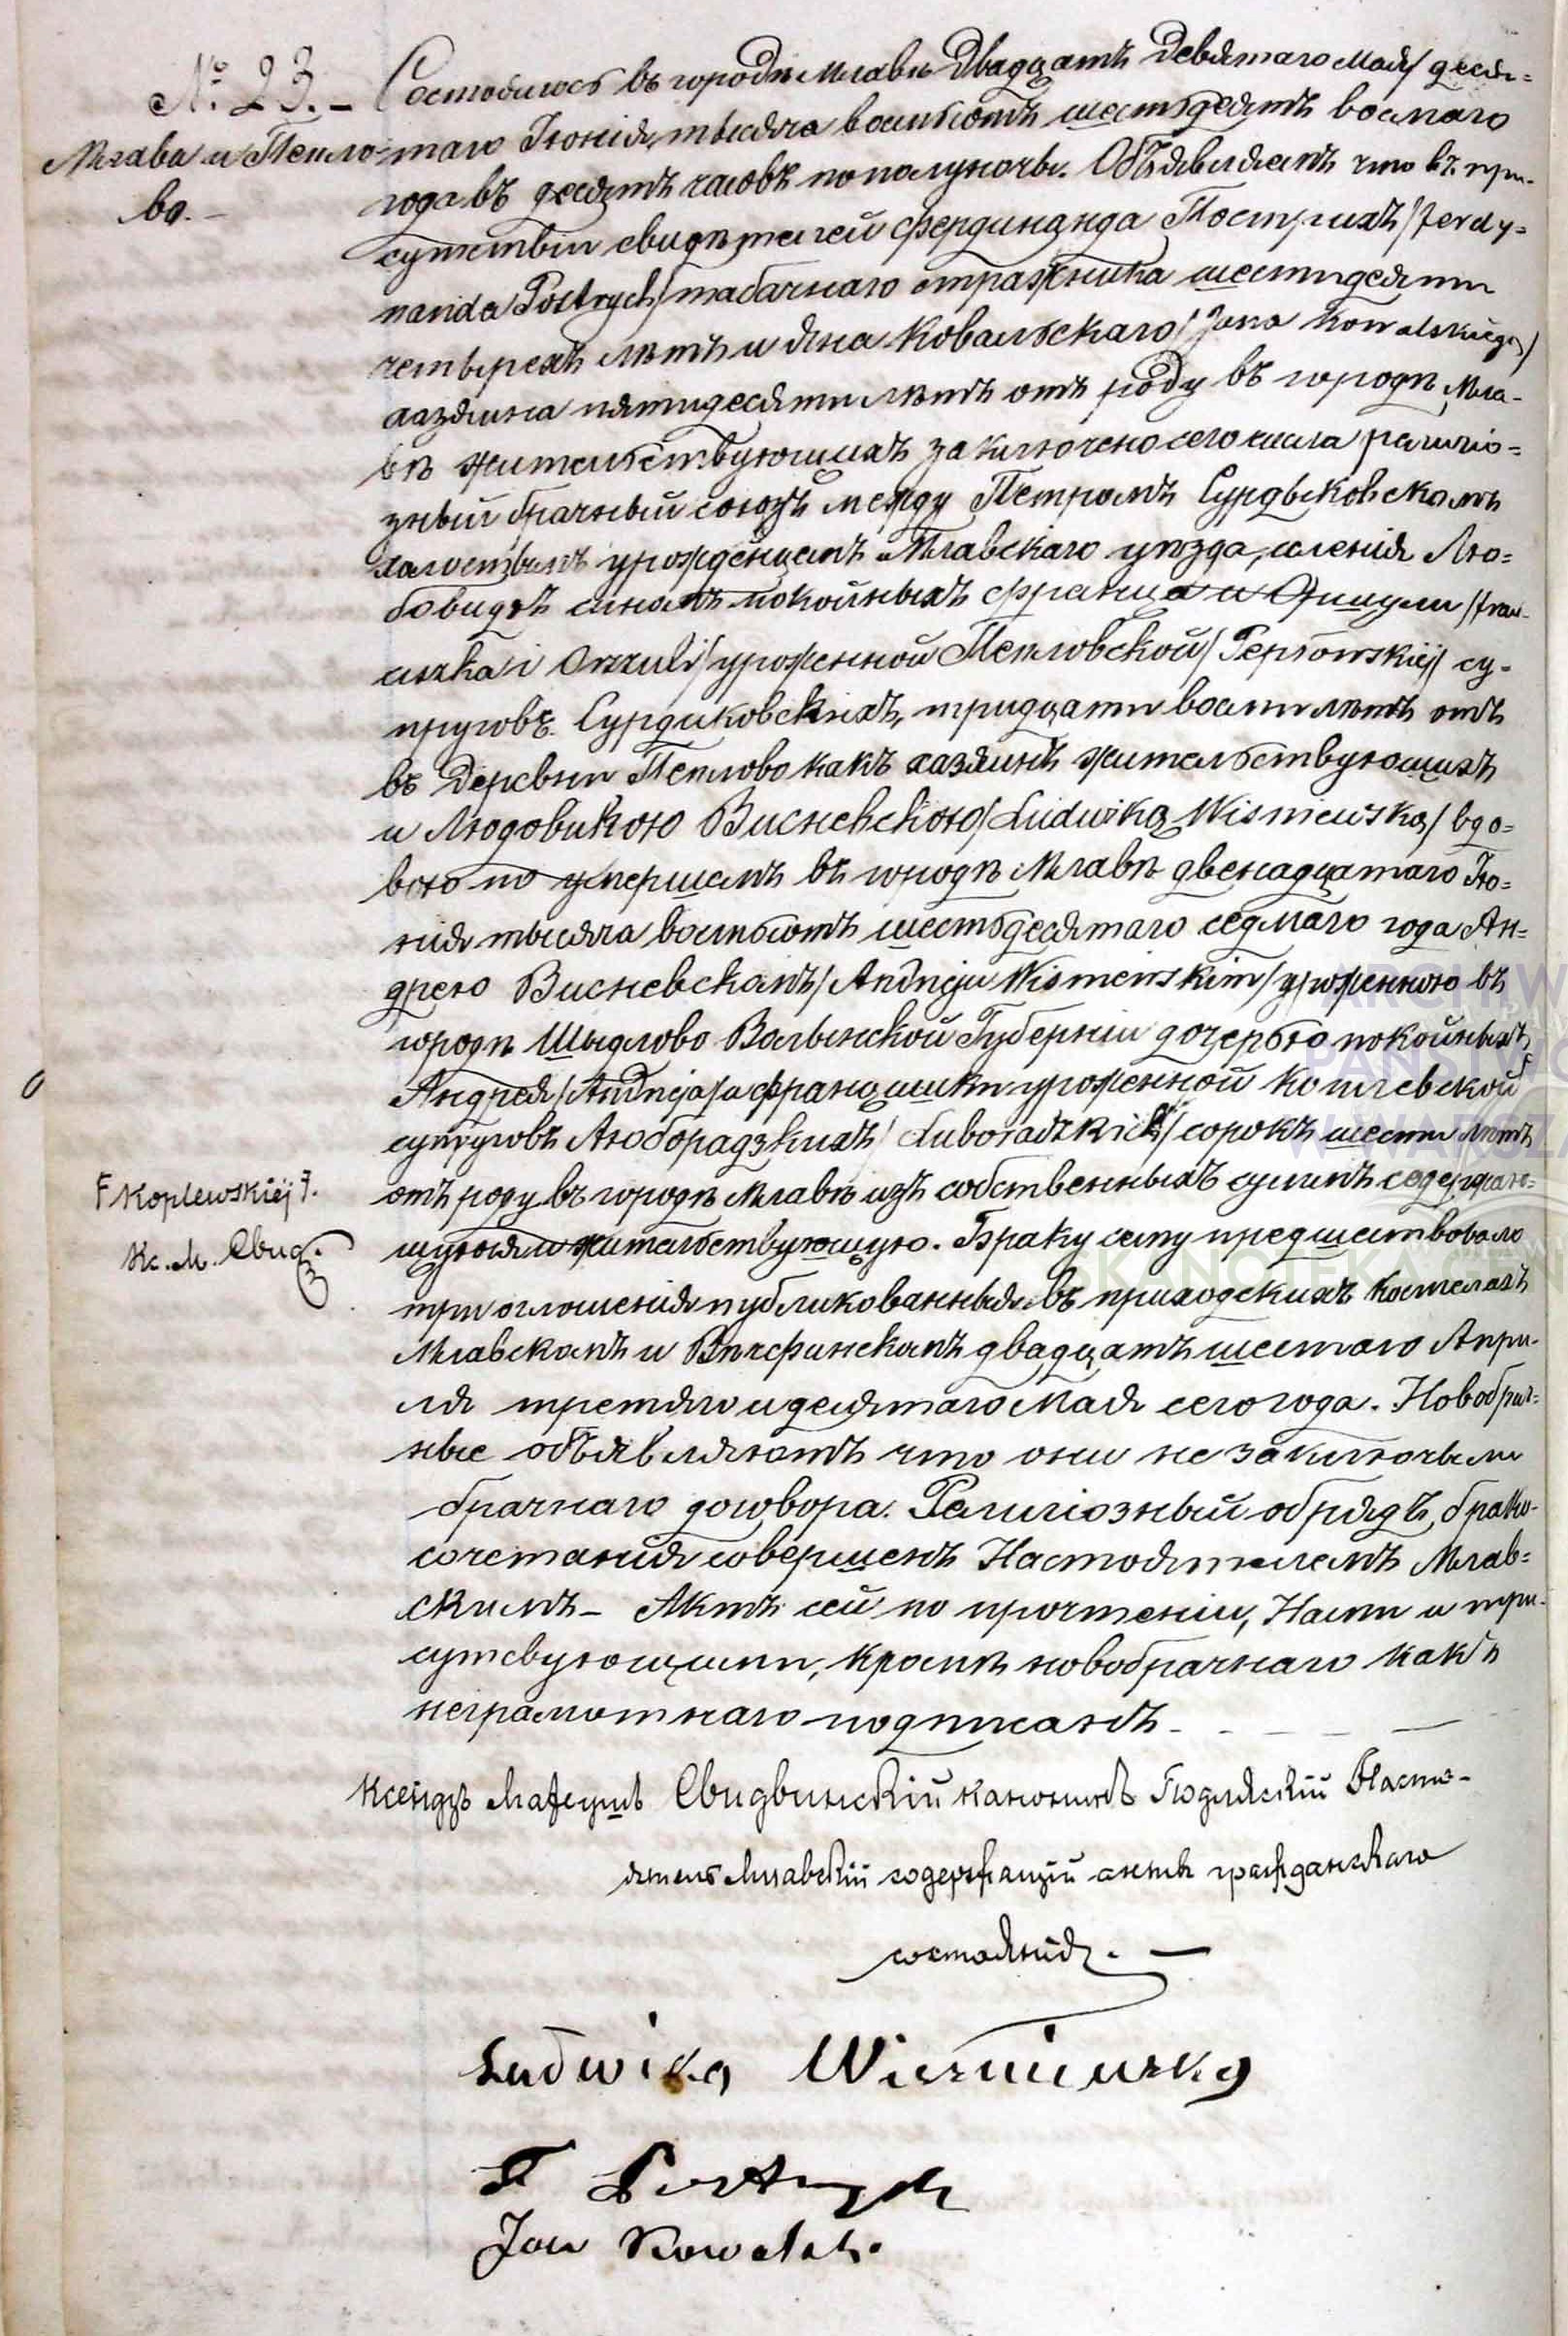 № 23. –
Млава и Пепло-
во. –
Состоялось въ городѣ Млавѣ Двадцать Девятаго Мая/ деся=
таго Іюнія, тысяча восьмсотъ шестьдесятъ восмаго
года въ десять часовъ пополуночи. Объявляемъ что въ при-
сутствіи свидѣтелей Фердинанда Пострыхъ/Ferdy=
nanda Postrych/ табачнаго стражника шестидесяти
четырехъ лѣтъ и Яна Ковальскаго/Jana Kowalskiego/
хазяина пятидесяти лѣтъ отъ роду въ городѣ Мла-
вѣ жительствующихъ заключено сего числа религіо=
зный брачный союзъ между Петромъ Сурдыковскомъ
холостымъ урожденцемъ Млавскаго уѣзда, селенія Лю=
бовидзъ сыномъ покойныхъ Франца и Оршули /Fran-
ciszka i Orszuli/ урожденной Пепловской/Pepłowskiéj/ су-
пруговъ Сурдиковскихъ, тридцати восьми лѣтъ отъ
въ Деревни Пеплово какъ хазяинъ жительствующихъ
и Людовикою Висневскою/Ludwiką Wisniewską/ вдо=
вою по умершемъ въ городѣ Млавѣ двенадцатаго Ію=
нія тысяча восьмсотъ шестьдесятаго седмаго года Ан=
дрею Висневскомъ/Andrzeju Wisniewskim/ урожденною въ
городѣ Шыдлово Волынской Губерніи дочерью покойныхъ
Андрея/Andrzeja/ и Францишки урожденной Коплевской F
супруговъ Люборадзкихъ/Luboradzkich/ сорокъ шести лѣтъ
отъ роду въ городѣ Млавѣ изъ собственныхъ суммъ содержаю=
щуюся и жительствующую. Браку сему предшествовало
три оглошенія публикованныя въ приходскихъ костелахъ
Млавскомъ и Вѣчфинскомъ двадцать шестаго Апри-
ля третяго и десятаго Мая сего года. Новобрач=
ные объявляютъ что они не заключыли
брачнаго договора. Религіозный обрядъ, брако-
сочетанія совершенъ Настоятелемъ Млав=
скимъ – Актъ сей по прочтеніи, Нами и при-
сутсвующими, кромѣ новобрачнаго какъ
неграмотнаго подписанъ. –
F Koplewskiéj F.
Кс. М. Свид.
Ксендзъ Матеушъ Свидвинскій каноникъ Подляскій Насто-
ятель Млавскій содержащій актъ гражданскаго
состоянія. —
Ludwika Wiszniewska
F Postrych
Jan Kowalski.
ARCHIW
PAŃSTWO
W WARSZA
SKANOTEKA GEN